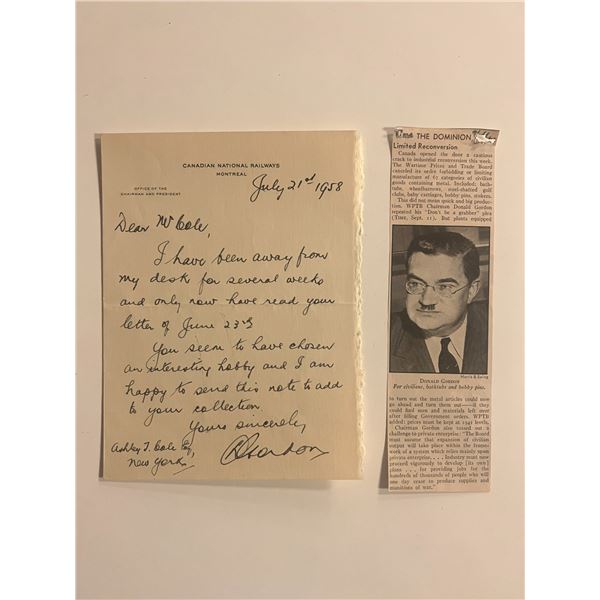 CANADIAN NATIONAL RAILWAYS
MONTREAL
OFFICE OF THE
CHAIRMAN AND PRESIDENT
July 21st 1958
Dear Mr Cole,
I have been away from
my desk for several weeks
and only now have read your
letter of June 23rd
You seem to have chosen
an interesting hobby and I am
happy to send this note to add
to your collection
Yours sincerely,
DGordon
Ashley T. Cole Esq,
New York.
THE DOMINION
Limited Reconversion
Canada opened the door a cautious
crack to industrial reconversion this week.
The Wartime Prices and Trade Board
canceled its order forbidding or limiting
manufacture of 67 categories of civilian
goods containing metal. Included: bath-
tubs, wheelbarrows, steel-shafted golf
clubs, baby carriages, bobby pins, stokers.
This did not mean quick and big produc-
tion. WPTB Chairman Donald Gordon
repeated his "Don't be a grabber" plea
(TIME, Sept. 11). But plants equipped
Harris & Ewing
DONALD GORDON
For civilians, bathtubs and bobby pins.
to turn out the metal articles could now
go ahead and turn them out—if they
could find men and materials left over
after filling Government orders. WPTB
added: prices must be kept at 1941 levels.
Chairman Gordon also tossed out a
challenge to private enterprise: "The Board
must assume that expansion of civilian
output will take place within the frame-
work of a system which relies mainly upon
private enterprise. . . . Industry must now
proceed vigorously to develop [its own]
plans . . . for providing jobs for the
hundreds of thousands of people who will
one day cease to produce supplies and
munitions of war."